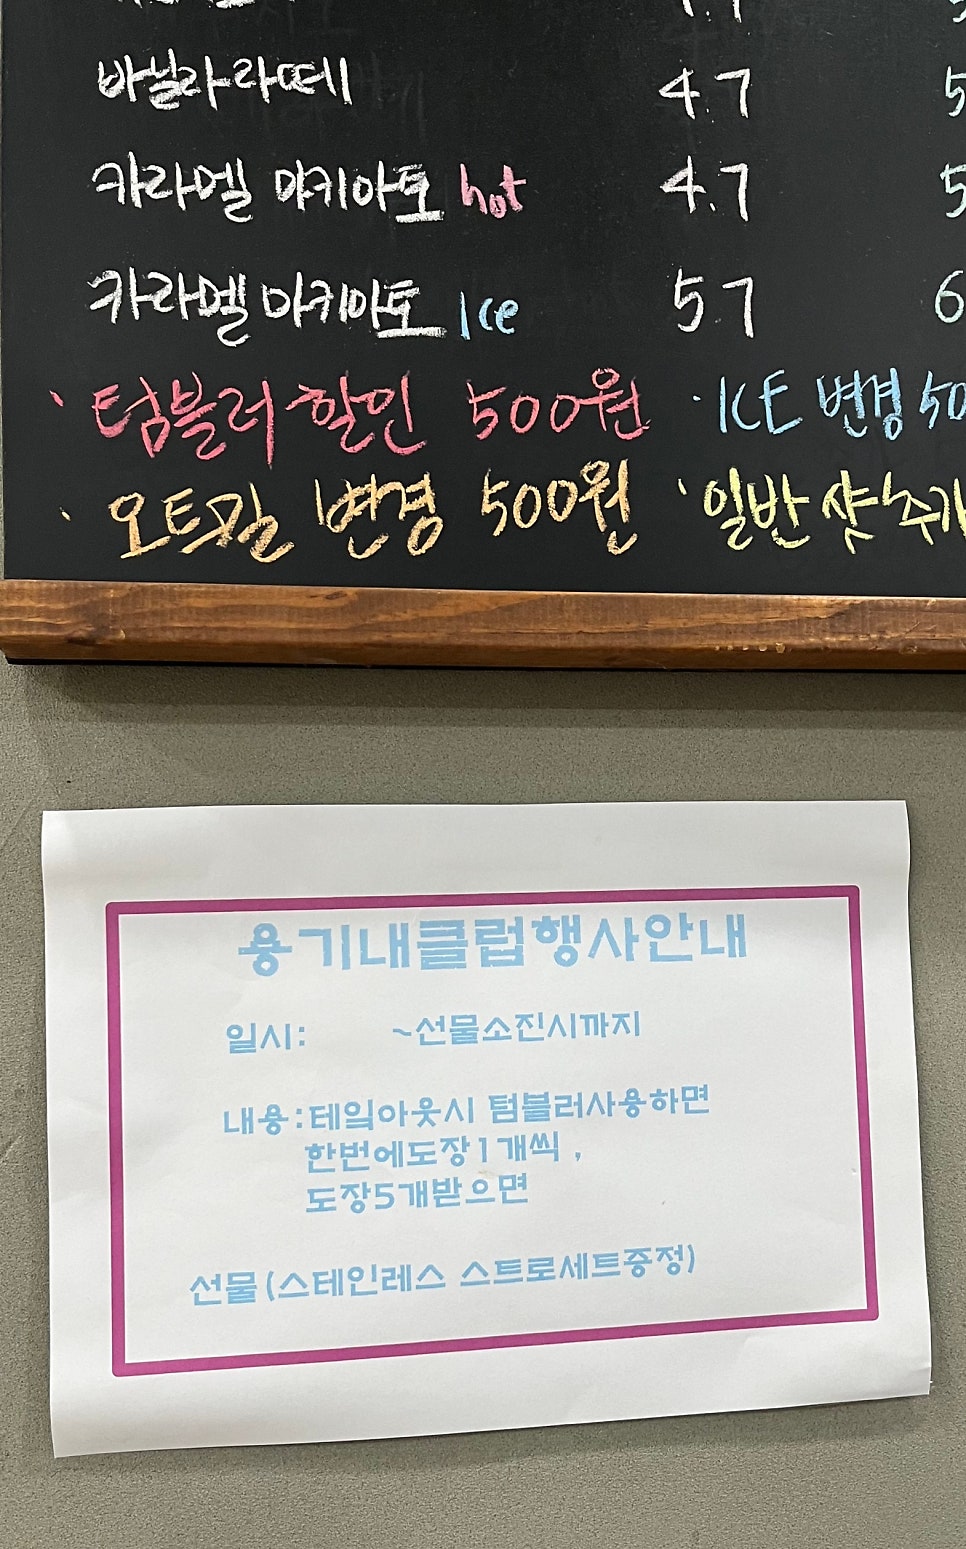 바닐라라떼 4.7 5
카라멜 마키아토 hot 4.7 5
카라멜마키아토 Ice 5 7 6
· 텀블러할인 500원 · ICE 변경 50
· 오트밀 변경 500원 · 일반 샷추가
용기내클럽행사안내
일시: ~선물소진시까지
내용:테잌아웃시 텀블러사용하면
한번에도장1개씩,
도장5개받으면
선물(스테인레스 스트로세트증정)